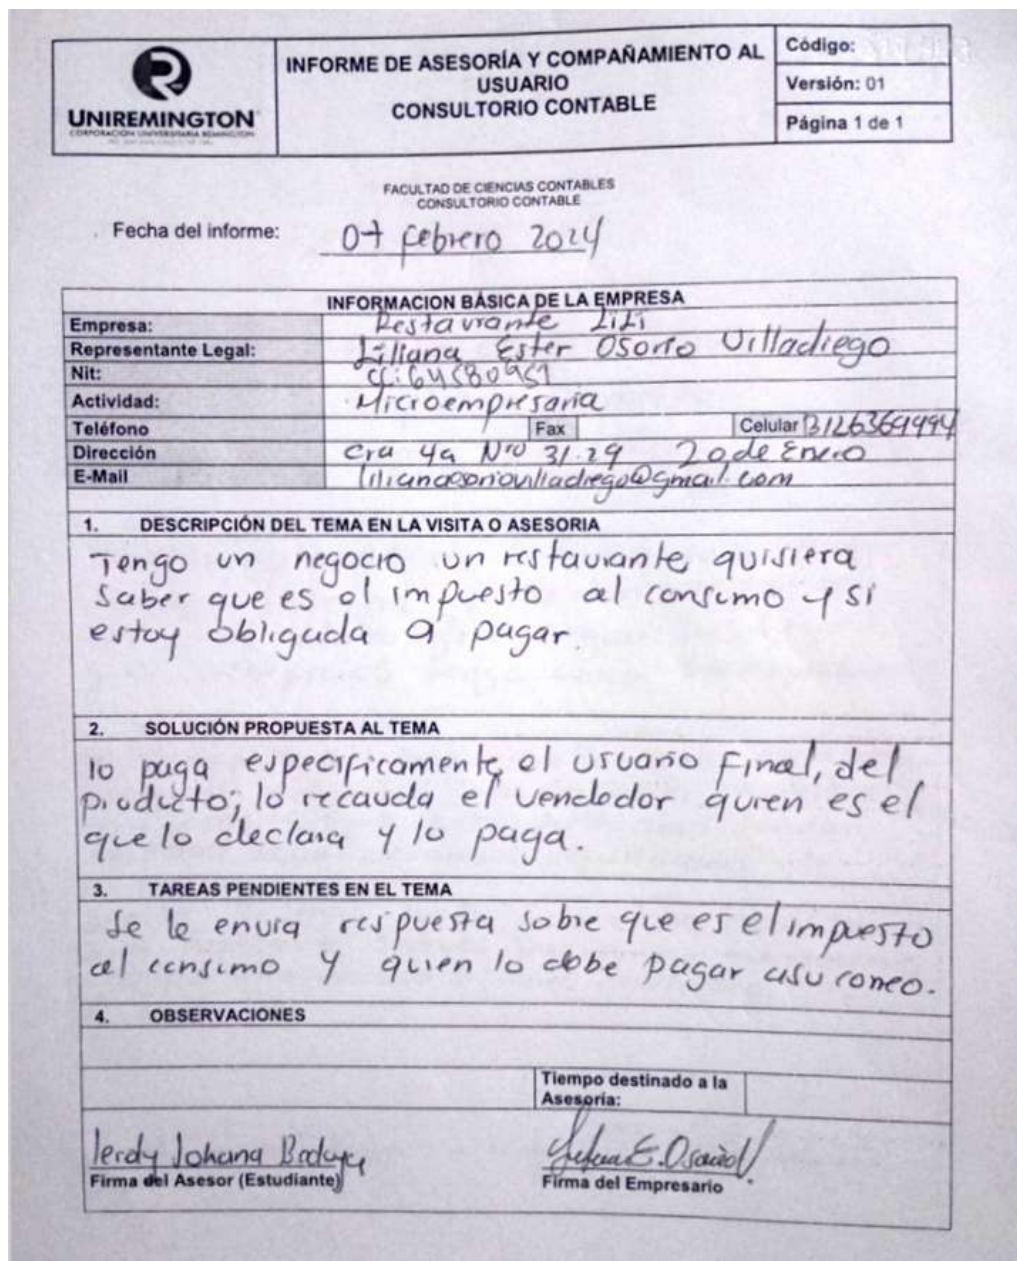 UNIREMINGTON
CORPORACIÓN UNIVERSITARIA REMINGTON
INFORME DE ASESORÍA Y COMPAÑAMIENTO AL
USUARIO
CONSULTORIO CONTABLE
Código:
Versión: 01
Página 1 de 1
FACULTAD DE CIENCIAS CONTABLES
CONSULTORIO CONTABLE
Fecha del informe: 07 febrero 2024
INFORMACION BÁSICA DE LA EMPRESA
Empresa: Restaurante LiLi
Representante Legal: Liliana Ester Osorio Villadiego
Nit: cc: 64580951
Actividad: Microempresaria
Teléfono Fax Celular 3126369994
Dirección Cra 4a Nro 31.29 20 de Enero
E-Mail lilianaosoriovilladiego@gmail.com
1. DESCRIPCIÓN DEL TEMA EN LA VISITA O ASESORIA
Tengo un negocio un restaurante, quisiera
saber que es el impuesto al consumo y si
estoy obligada a pagar.
2. SOLUCIÓN PROPUESTA AL TEMA
lo paga especificamente, el usuario final, del
producto; lo recauda el vendedor quien es el
que lo declara y lo paga.
3. TAREAS PENDIENTES EN EL TEMA
Se le envia respuesta sobre que es el impuesto
al consumo y quien lo debe pagar a su correo.
4. OBSERVACIONES
Tiempo destinado a la
Asesoría:
Johana
Firma del Asesor (Estudiante)
E. Osorio V.
Firma del Empresario